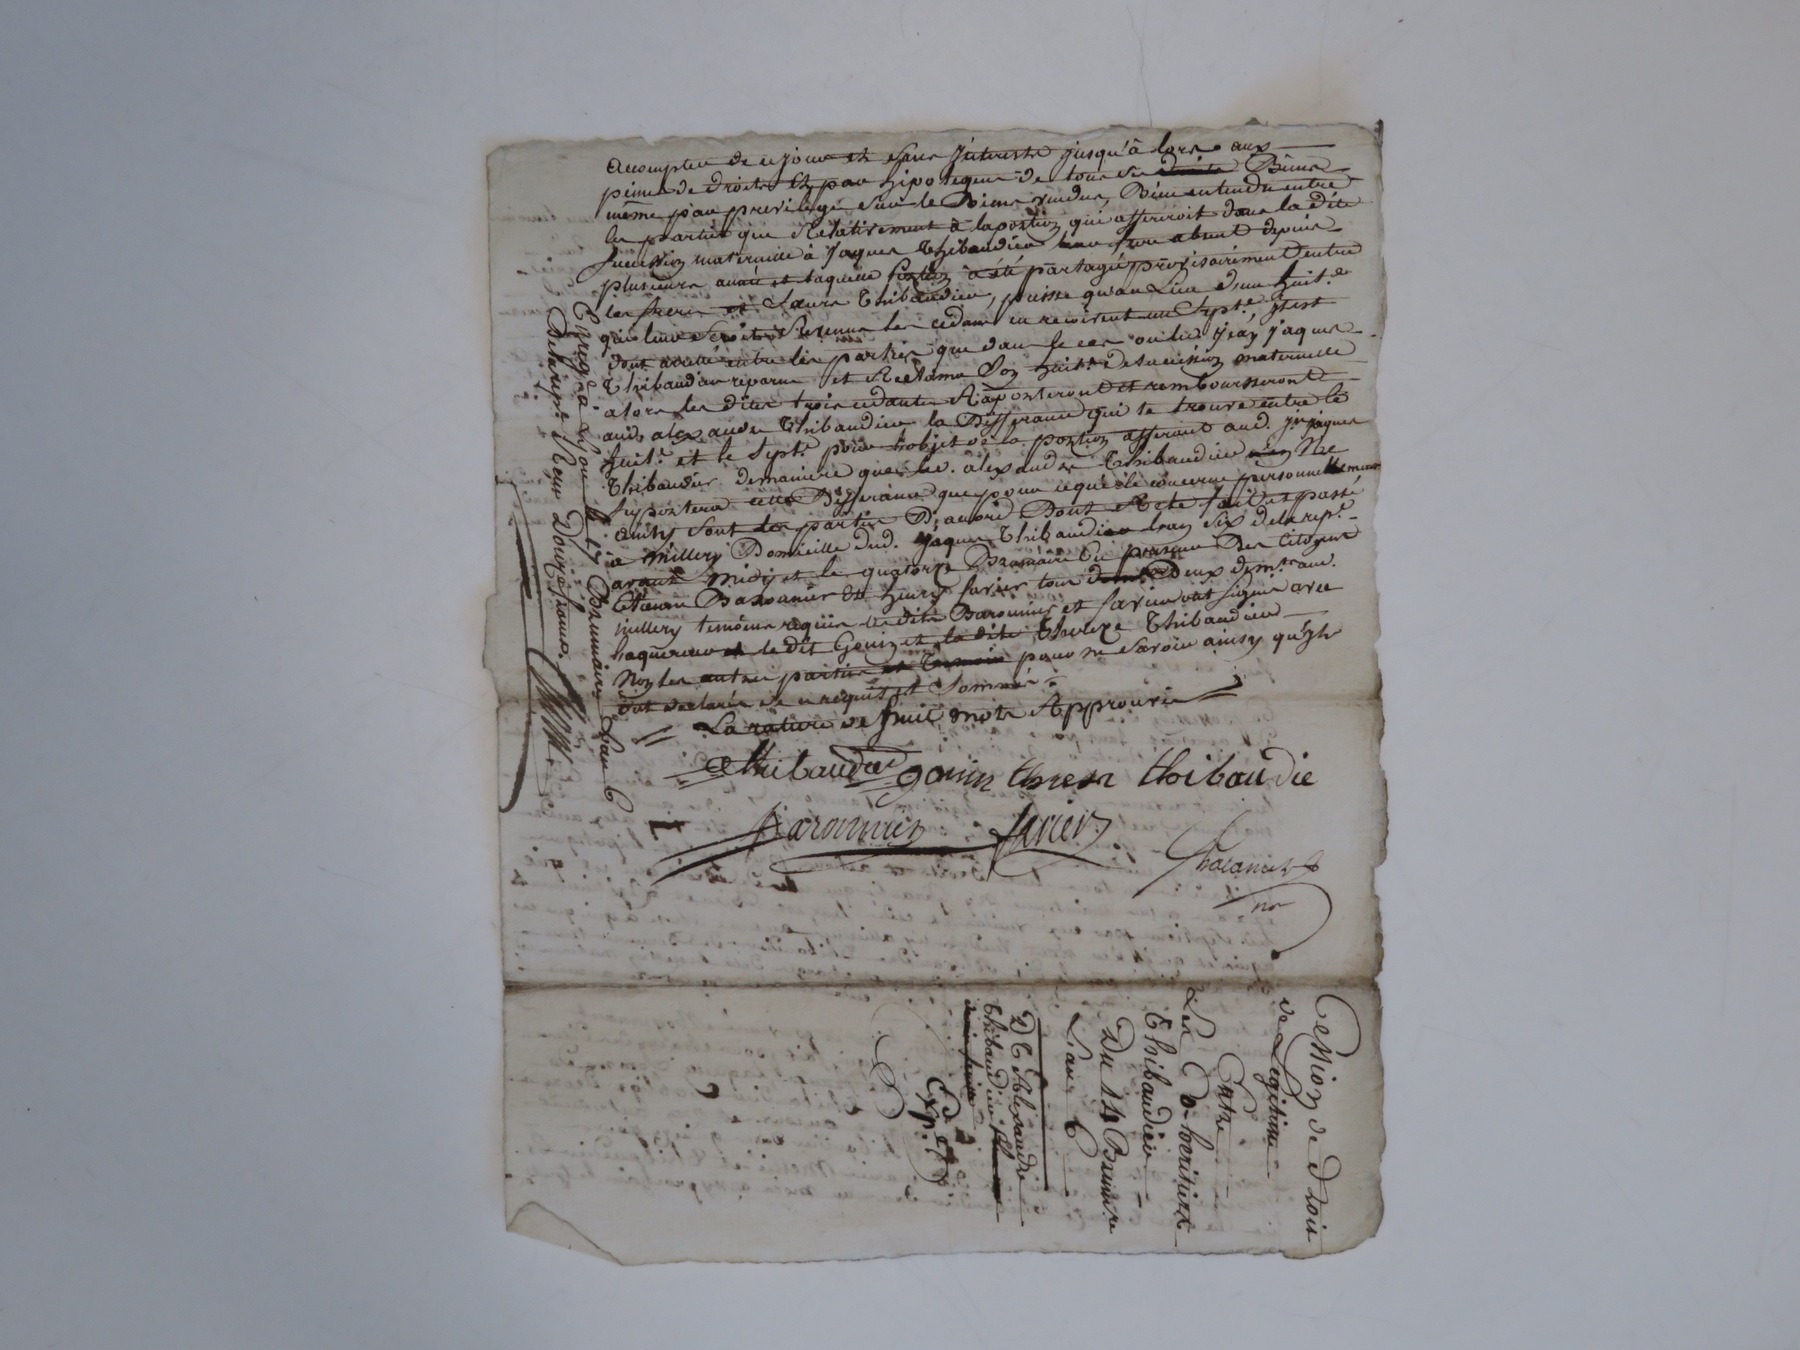 Acompter de ce jour et sans jnterests jusqu'à lors aux
peines de droits Et par hipoteque de tous ses Biens
même par previlege sur le Biens vendus, Bien entendu entre
les parties que Relativement à la portion qui afferoit dans la dite
succession maternelle à Jaques Thibaudier leur frere absent depuis
plusieurs anné et laquelle portion a été partagée provisoirement entre
les freres et Sœurs Thibaudier, puisse qu'au Lieu d'un huit.e
qui leur seroit Revenu les cedans en recoivent un Sept.e jl est
dont arrêté entre les parties que dans le cas ou led. jean jaques
Thibaudier reparu et Reclama Son huit.e de succession maternelle
alors les dites trois cedantes Raporteront et rembourseront
aud. alexandre Thibaudier la Differance qui se trouve entre le
huit.e et le Sept.e pour l'objet de la portion afferant aud. jn jaques
Thibaudier de maniere que led. alexandre Thibaudier Ne
suportera cette Differance que pour ce qui le concerne personnellement
Ainsy sont les parties D'accord Dont Acte fait et passé
a millery Domicille dud. jaques Thibaudier l'an six de la rep.e
avant Midy et le quatorze Brumaire En presence Des Citoyens
Etienne Baronnier Et henry favier tous deux dem.ts aud.
millery temoins requis les dits Baronnier et favier ont signé avec
l'aquereur le dit Gonin et la dite Thereze Thibaudier
Non les autres parties pour ne Savoir ainsy qu'ils
ont declarés de ce requis et Sommés
La rature de huit mots Approuvée
Thibaudier gonin theresa thibaudie
Baronnier favier
not
Enregé a Lyon le 17 Brumaire l'an 6
Douze francs
Cession de droit
de Légitime
Entre
Les Co-heritiers
Thibaudier
Du 14 Brum.re
L'an 6
D C Alexandre
Thibaudier
Exp.